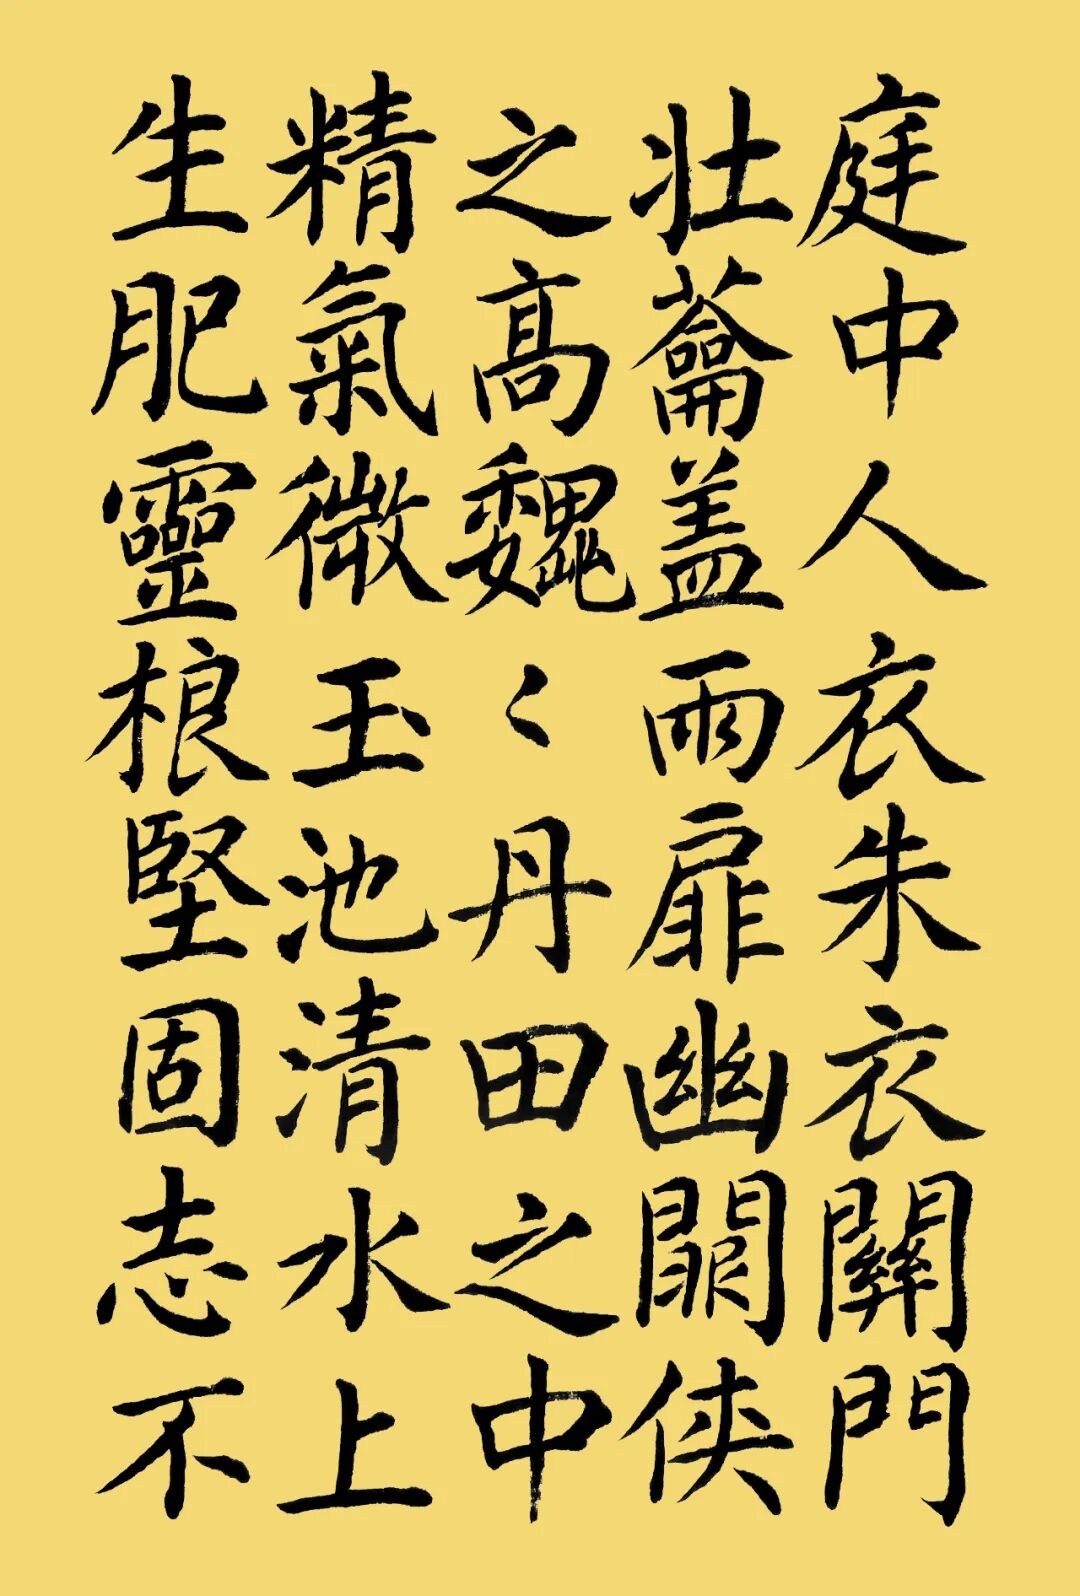 庭中人衣朱衣關門
壮蘥盖兩扉幽闗侠
之高魏〻丹田之中
精氣微玉池清水上
生肥靈根堅固志不